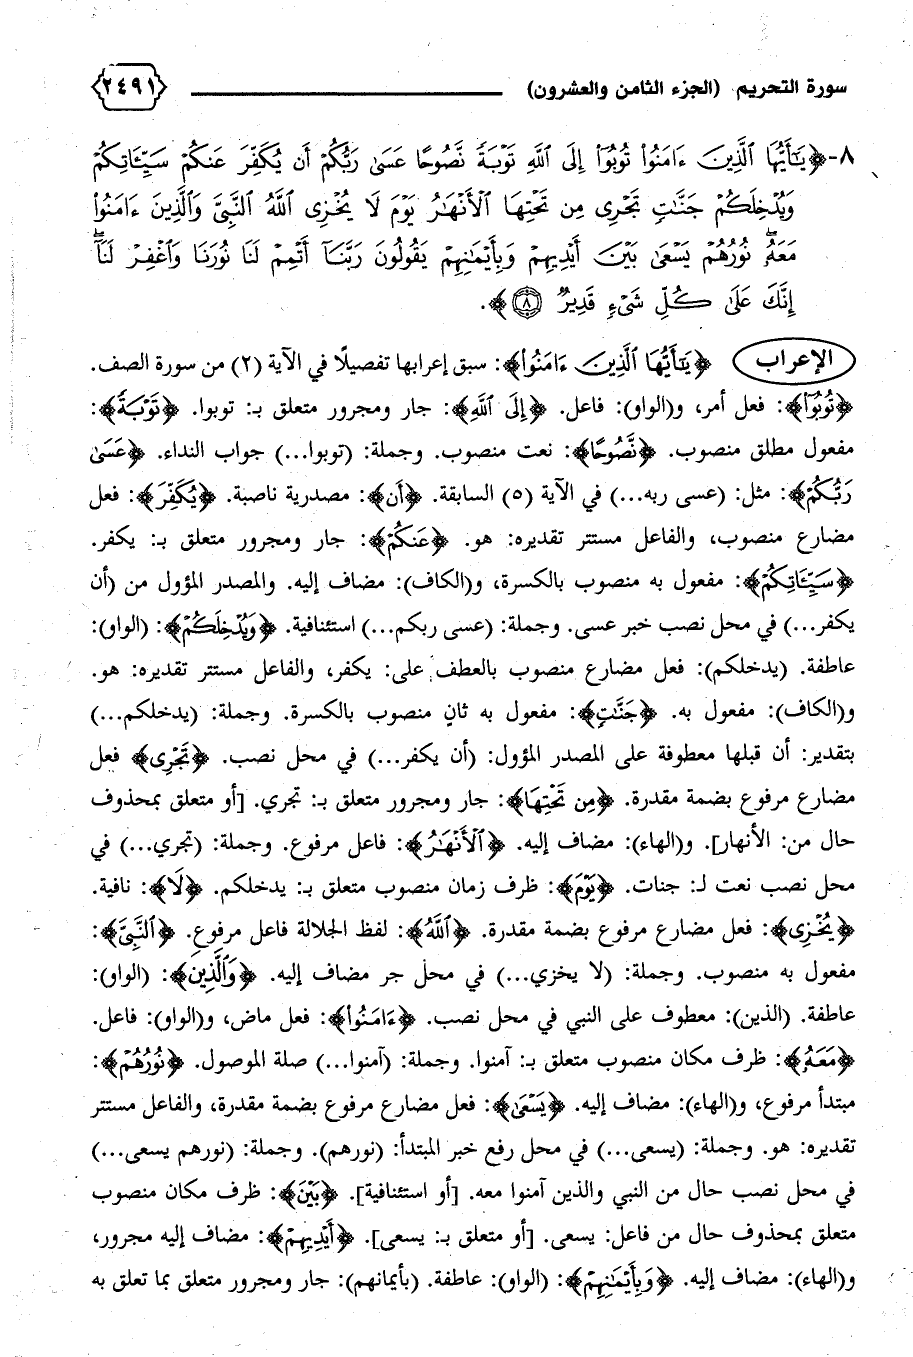 سورة التحريم (الجزء الثامن والعشرون) ٢٤٩١
٨- ﴿يَٰٓأَيُّهَا ٱلَّذِينَ ءَامَنُوا۟ تُوبُوٓا۟ إِلَى ٱللَّهِ تَوْبَةً نَّصُوحًا عَسَىٰ رَبُّكُمْ أَن يُكَفِّرَ عَنكُمْ سَيِّـَٔاتِكُمْ
وَيُدْخِلَكُمْ جَنَّٰتٍ تَجْرِى مِن تَحْتِهَا ٱلْأَنْهَٰرُ يَوْمَ لَا يُخْزِى ٱللَّهُ ٱلنَّبِىَّ وَٱلَّذِينَ ءَامَنُوا۟
مَعَهُۥۖ نُورُهُمْ يَسْعَىٰ بَيْنَ أَيْدِيهِمْ وَبِأَيْمَٰنِهِمْ يَقُولُونَ رَبَّنَآ أَتْمِمْ لَنَا نُورَنَا وَٱغْفِرْ لَنَآۖ
إِنَّكَ عَلَىٰ كُلِّ شَىْءٍ قَدِيرٌ ٨﴾.
الإعراب ﴿يَٰٓأَيُّهَا ٱلَّذِينَ ءَامَنُوا۟﴾: سبق إعرابها تفصيلًا في الآية (٢) من سورة الصف.
﴿تُوبُوٓا۟﴾: فعل أمر، و(الواو): فاعل. ﴿إِلَى ٱللَّهِ﴾: جار ومجرور متعلق بـ: توبوا. ﴿تَوْبَةً﴾:
مفعول مطلق منصوب. ﴿نَّصُوحًا﴾: نعت منصوب. وجملة: (توبوا...) جواب النداء. ﴿عَسَىٰ
رَبُّكُمْ﴾: مثل: (عسى ربه...) في الآية (٥) السابقة. ﴿أَن﴾: مصدرية ناصبة. ﴿يُكَفِّرَ﴾: فعل
مضارع منصوب، والفاعل مستتر تقديره: هو. ﴿عَنكُمْ﴾: جار ومجرور متعلق بـ: يكفر.
﴿سَيِّـَٔاتِكُمْ﴾: مفعول به منصوب بالكسرة، و(الكاف): مضاف إليه. والمصدر المؤول من (أن
يكفر...) في محل نصب خبر عسى. وجملة: (عسى ربكم...) استئنافية. ﴿وَيُدْخِلَكُمْ﴾: (الواو):
عاطفة. (يدخلكم): فعل مضارع منصوب بالعطف على: يكفر، والفاعل مستتر تقديره: هو.
و(الكاف): مفعول به. ﴿جَنَّٰتٍ﴾: مفعول به ثانٍ منصوب بالكسرة. وجملة: (يدخلكم...)
بتقدير: أن قبلها معطوفة على المصدر المؤول: (أن يكفر...) في محل نصب. ﴿تَجْرِى﴾ فعل
مضارع مرفوع بضمة مقدرة. ﴿مِن تَحْتِهَا﴾: جار ومجرور متعلق بـ: تجري. [أو متعلق بمحذوف
حال من: الأنهار]. و(الهاء): مضاف إليه. ﴿ٱلْأَنْهَٰرُ﴾: فاعل مرفوع. وجملة: (تجري...) في
محل نصب نعت لـ: جنات. ﴿يَوْمَ﴾: ظرف زمان منصوب متعلق بـ: يدخلكم. ﴿لَا﴾: نافية.
﴿يُخْزِى﴾: فعل مضارع مرفوع بضمة مقدرة. ﴿ٱللَّهُ﴾: لفظ الجلالة فاعل مرفوع. ﴿ٱلنَّبِىَّ﴾:
مفعول به منصوب. وجملة: (لا يخزي...) في محل جر مضاف إليه. ﴿وَٱلَّذِينَ﴾: (الواو):
عاطفة. (الذين): معطوف على النبي في محل نصب. ﴿ءَامَنُوا۟﴾: فعل ماض، و(الواو): فاعل.
﴿مَعَهُۥ﴾: ظرف مكان منصوب متعلق بـ: آمنوا. وجملة: (آمنوا...) صلة الموصول. ﴿نُورُهُمْ﴾:
مبتدأ مرفوع، و(الهاء): مضاف إليه. ﴿يَسْعَىٰ﴾: فعل مضارع مرفوع بضمة مقدرة، والفاعل مستتر
تقديره: هو. وجملة: (يسعى...) في محل رفع خبر المبتدأ: (نورهم). وجملة: (نورهم يسعى...)
في محل نصب حال من النبي والذين آمنوا معه. [أو استئنافية]. ﴿بَيْنَ﴾: ظرف مكان منصوب
متعلق بمحذوف حال من فاعل: يسعى. [أو متعلق بـ: يسعى]. ﴿أَيْدِيهِمْ﴾: مضاف إليه مجرور،
و(الهاء): مضاف إليه. ﴿وَبِأَيْمَٰنِهِمْ﴾: (الواو): عاطفة. (بأيمانهم): جار ومجرور متعلق بما تعلق به